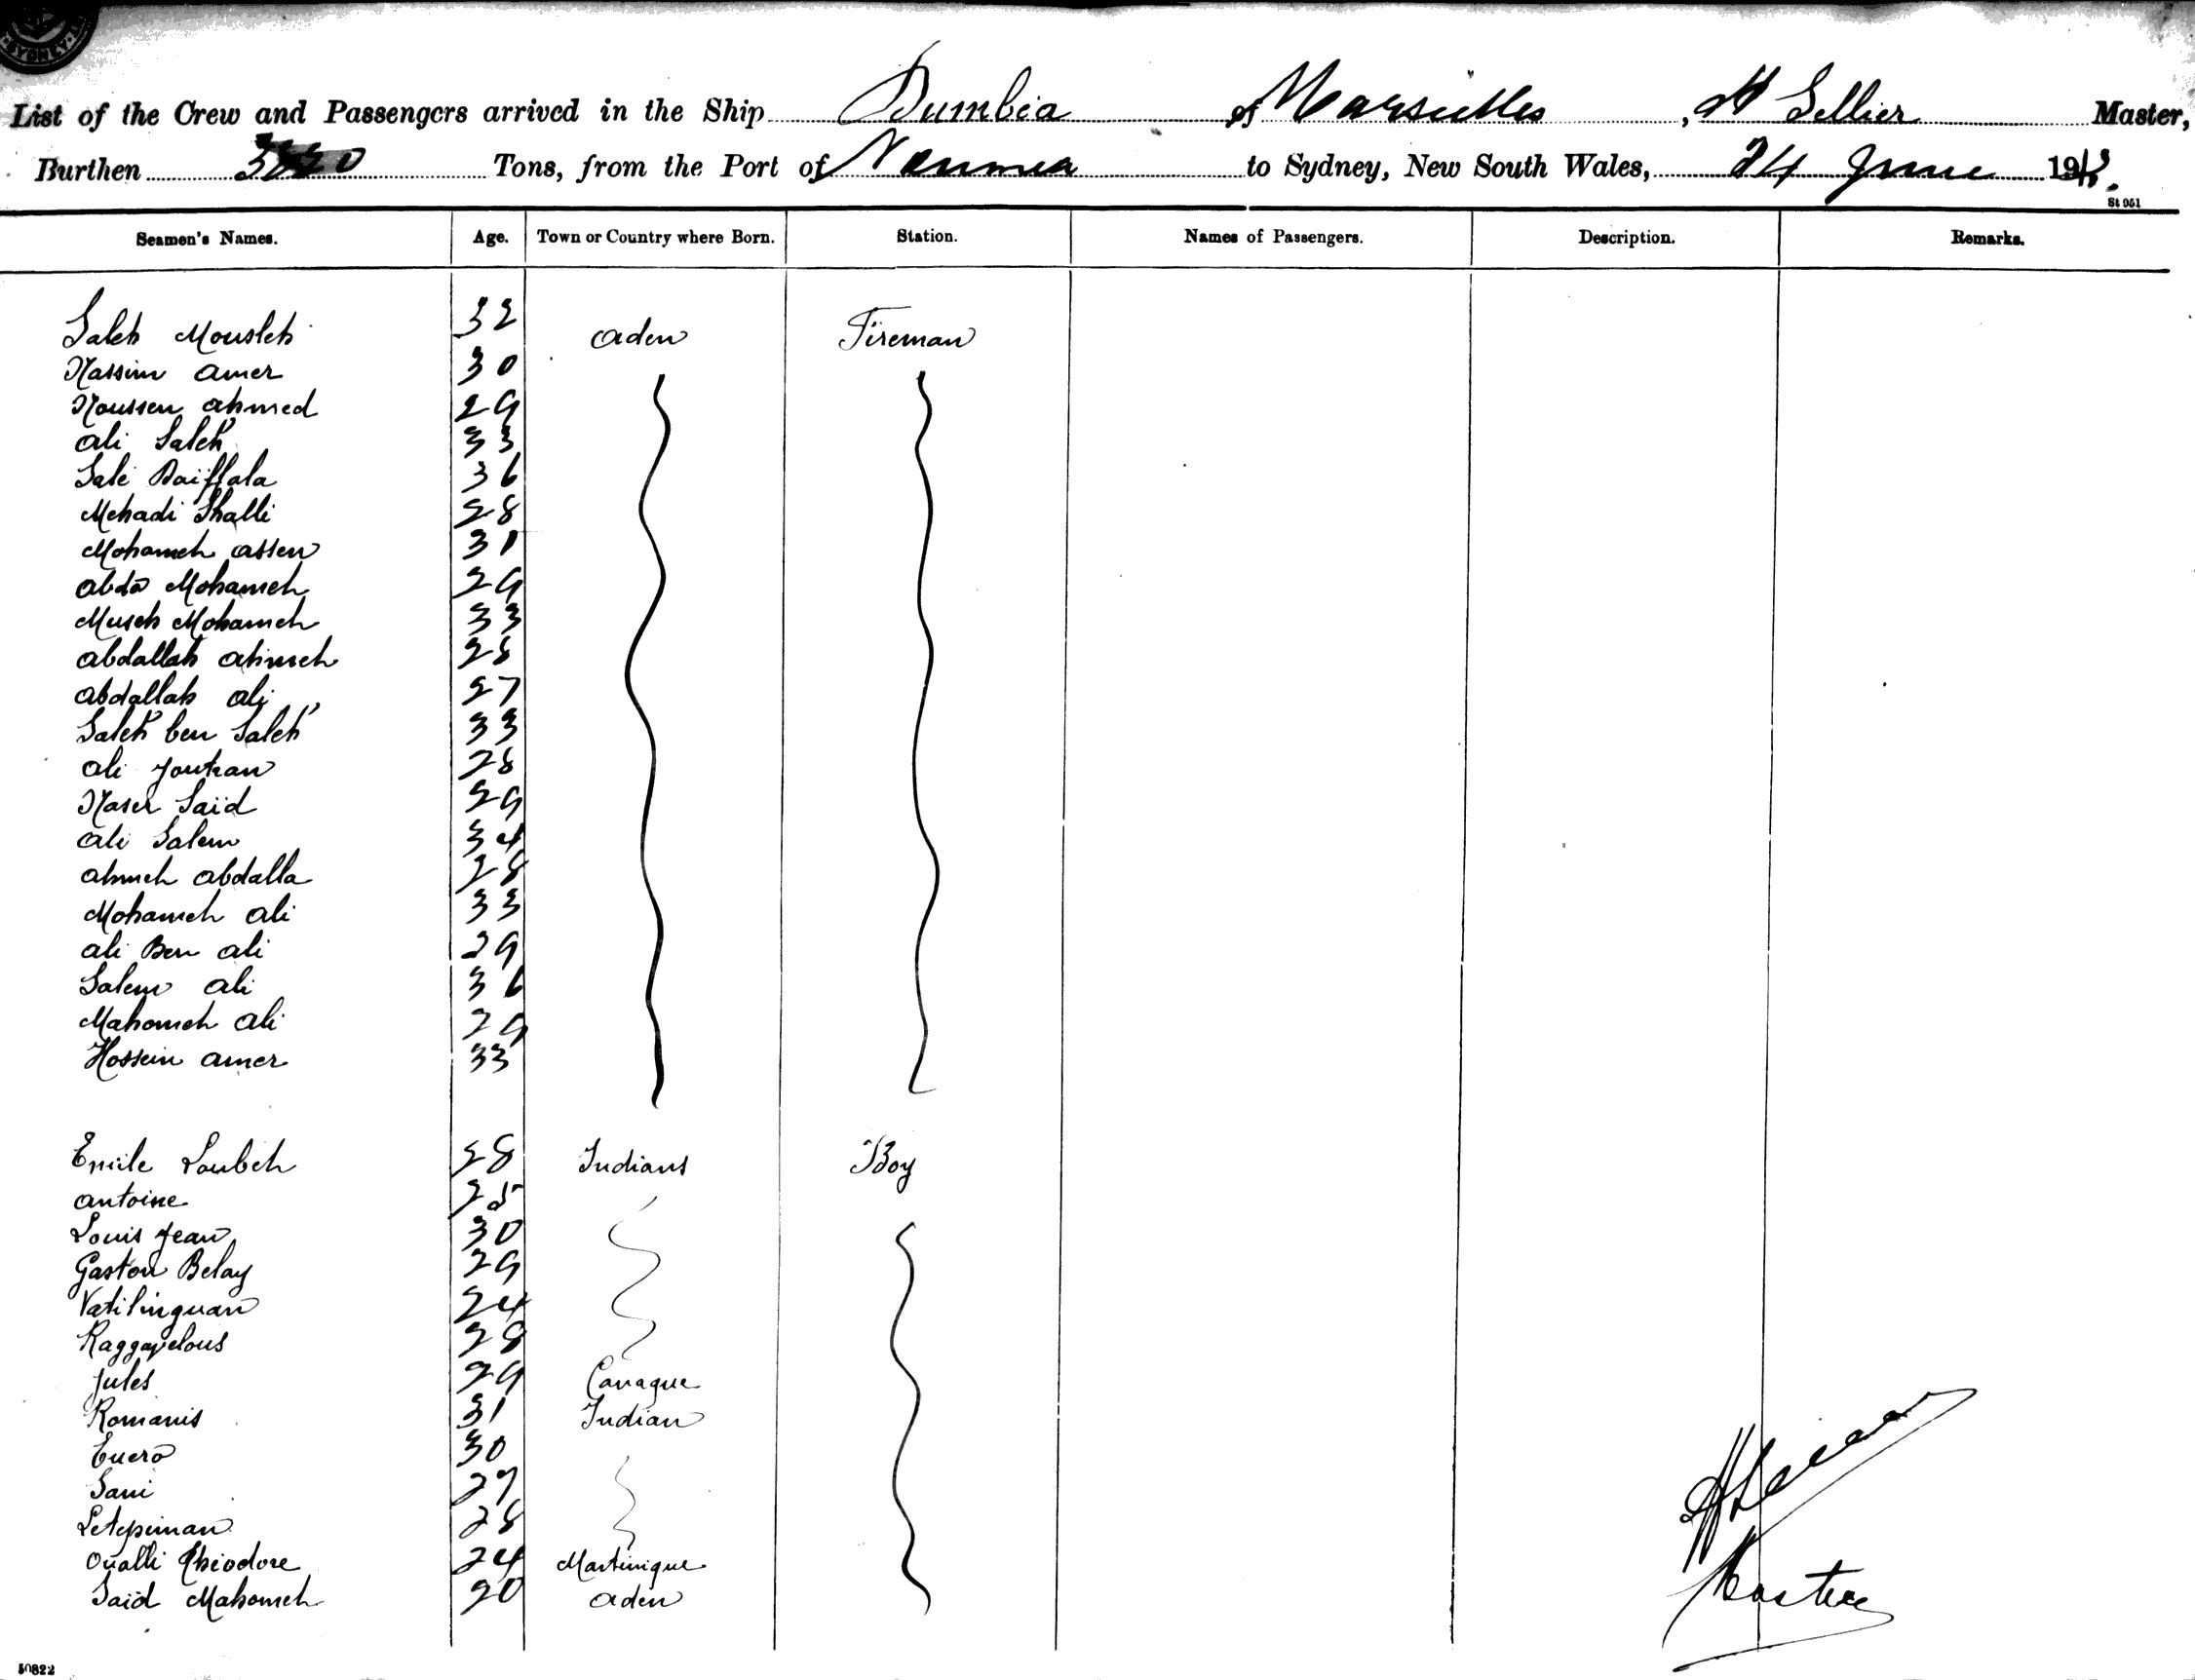 SYDNEY
List of the Crew and Passengers arrived in the Ship Dumbéa of Marseilles, H Sellier Master,
Burthen Tons, from the Port of Noumea to Sydney, New South Wales, 24 June 1913.
St 951
Seamen's Names. Age. Town or Country where Born. Station. Names of Passengers. Description. Remarks.
Saleh Mousleh 32 Aden Fireman
Nassim Amer 30
Houssen Ahmed 29
Ali Saleh 33
Salé Daïffala 36
Mehadi Thalli 28
Mohameh Assen 31
Abdo Mohameh 29
Museh Mohameh 33
Abdallah Ahmeh 28
Abdallah Ali 27
Saleh ben Saleh 33
Ali Joutran 28
Naser Saïd 29
Ali Salem 34
Ahmeh Abdalla 28
Mohameh Ali 33
Ali Ben Ali 29
Salem Ali 36
Mahomeh Ali 29
Hossein Amer 33
Emile Loubeh 28 Indians Boy
Antoine 25
Louis Jean 30
Gaston Belay 29
Vatilinguan 24
Raggavelous 28
Jules 29 Canaque
Romanis 31 Indian
Euero 30
Sani 27
Letepiman 28
Oualli Théodore 24 Martinique
Saïd Mahomeh 20 Aden
Master
50822